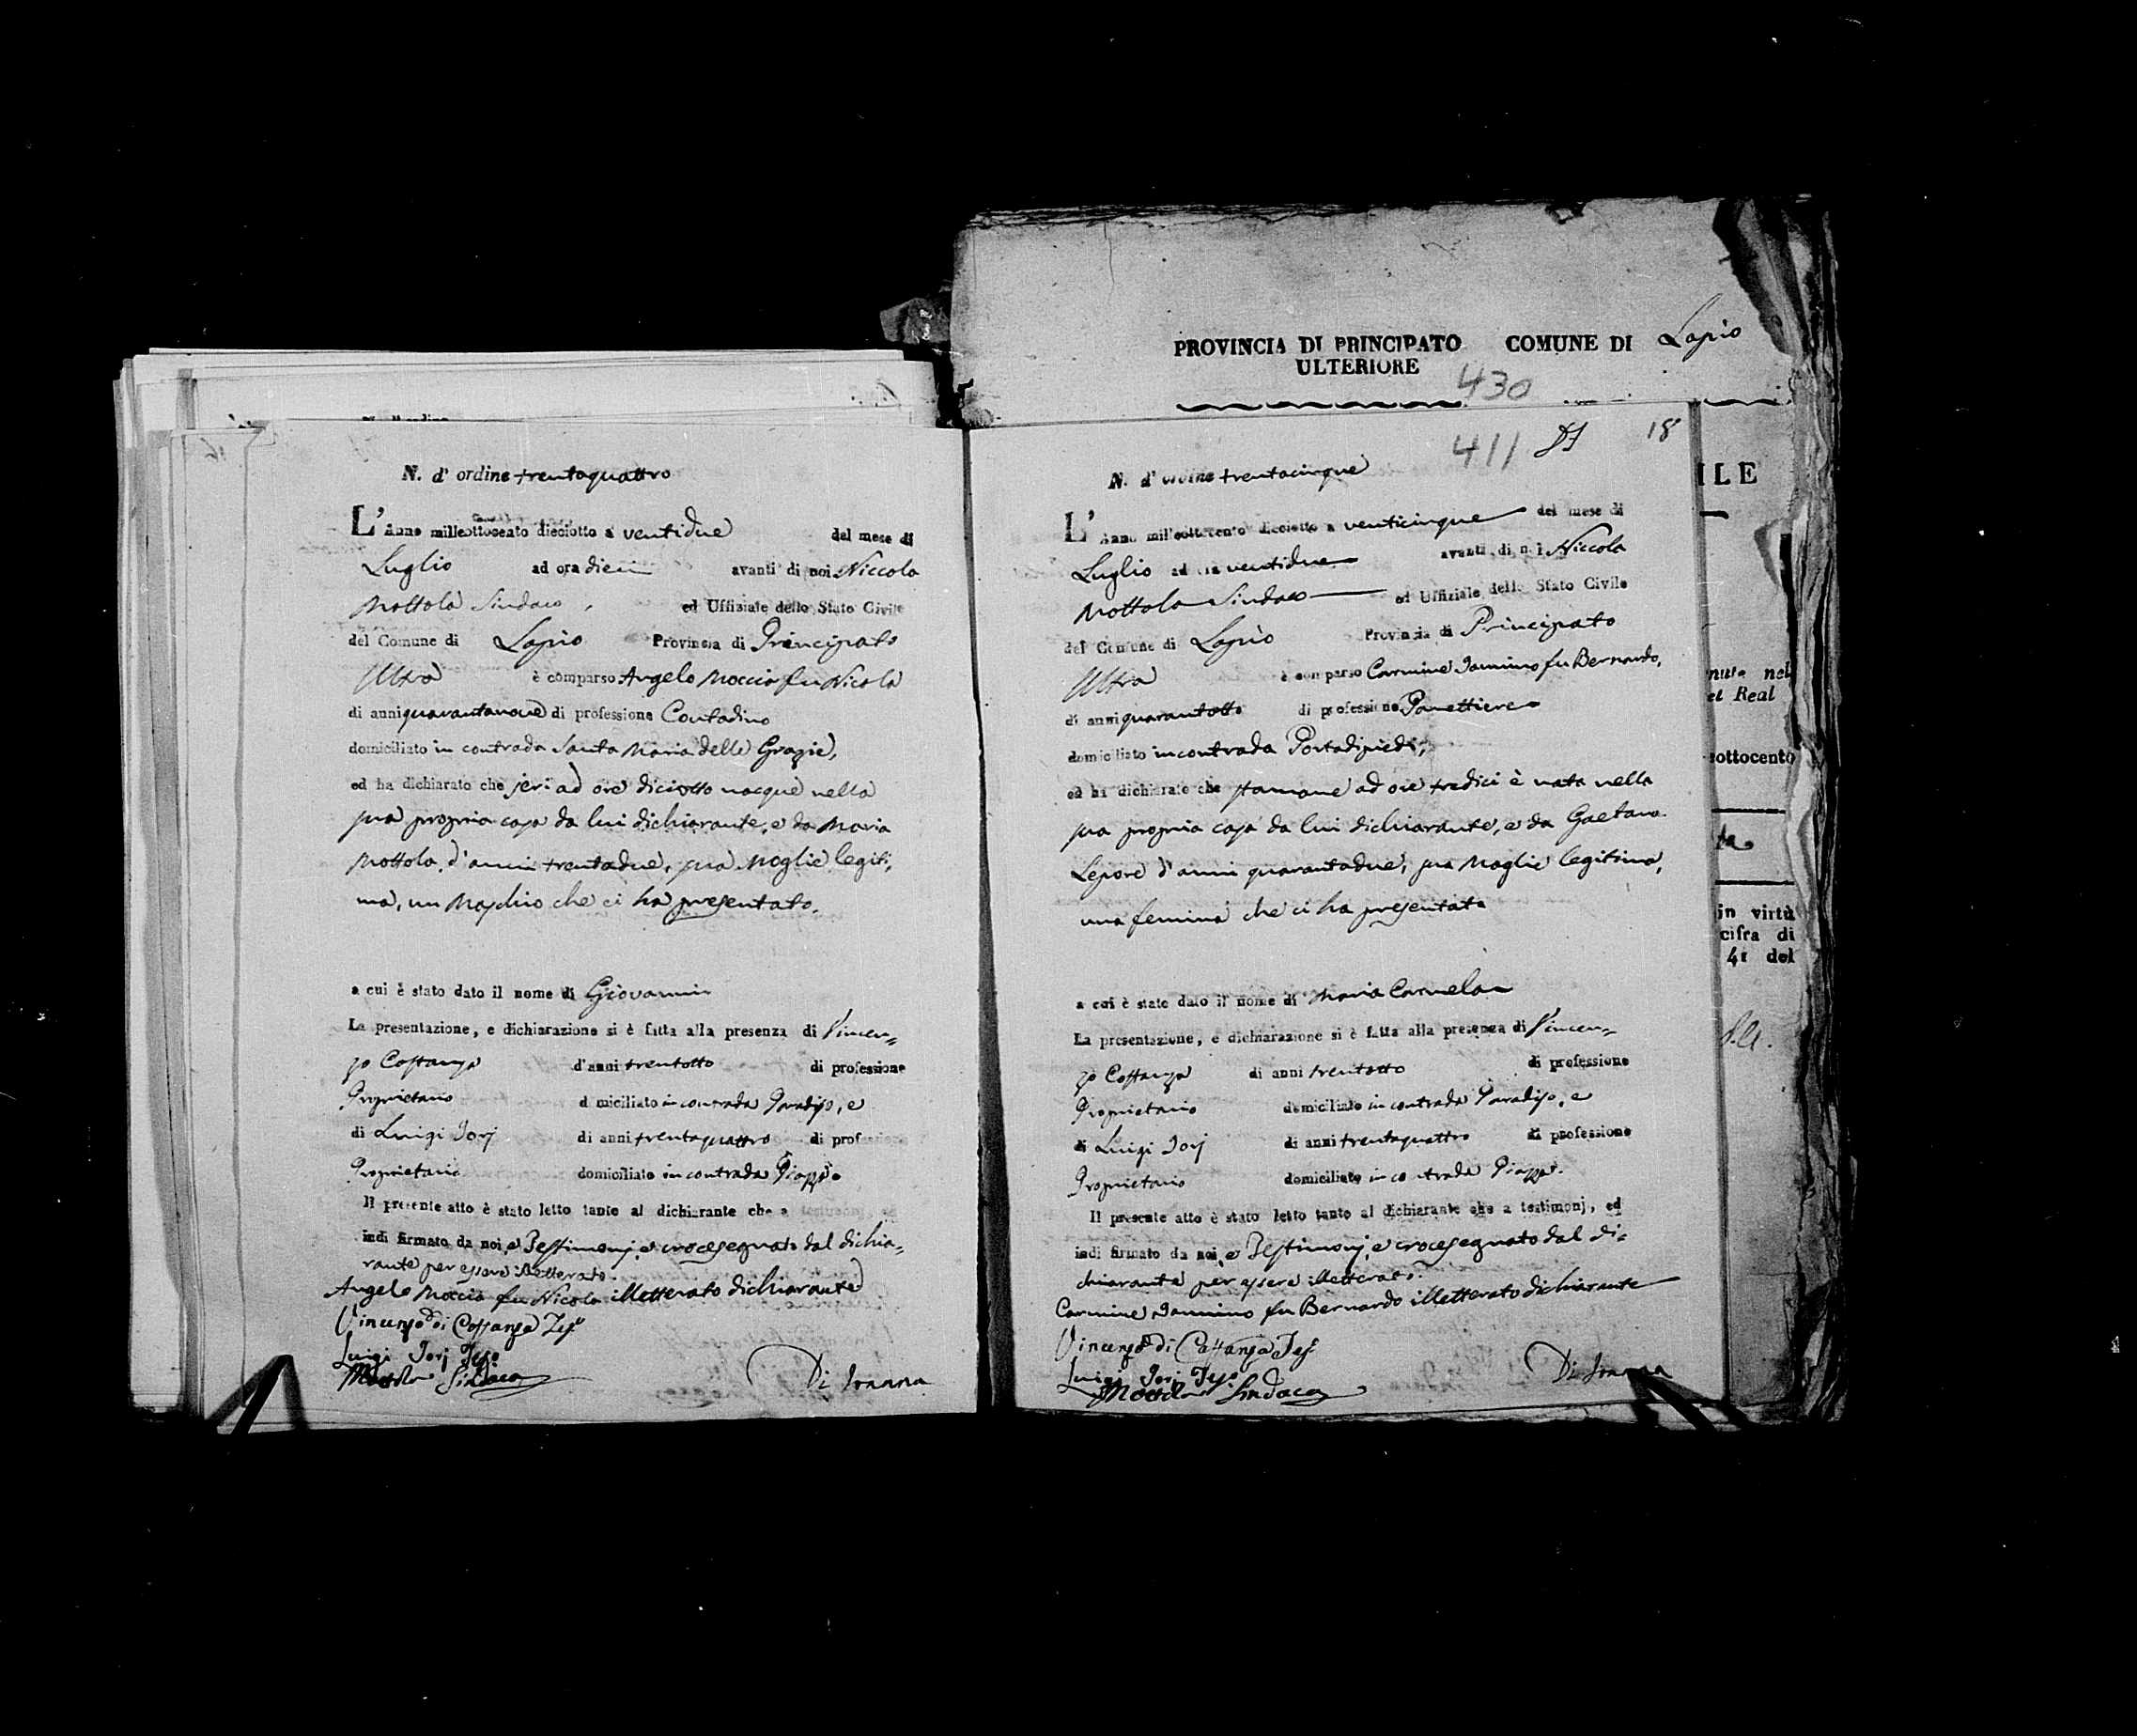 PROVINCIA DI PRINCIPATO ULTERIORE COMUNE DI Lapio
430
N. d' ordine trentaquattro
L' Anno milleottocento dieciotto a ventidue del mese di
Luglio ad ora dieci avanti di noi Niccola
Mottola Sindaco, ed Uffiziale dello Stato Civile
del Comune di Lapio Provincia di Principato
Ultra è comparso Angelo Moccia fu Nicola
di anni quarantanove di professione Contadino
domiciliato in contrada Santa Maria delle Grazie,
ed ha dichiarato che jeri ad ore diciotto nacque nella
sua propria casa da lui dichiarante, e da Maria
Mottola, d'anni trentadue, sua Moglie legiti,
ma, un Maschio che ci ha presentato.
a cui è stato dato il nome di Giovanni
La presentazione, e dichiarazione si è fatta alla presenza di Vincen=
zo Costanza d'anni trentotto di professione
Proprietario d miciliato in contrada Paradiso, e
di Luigi Iorj di anni trentaquattro di professione
Proprietario domiciliato in contrada Piazza
Il presente atto è stato letto tanto al dichiarante che a testimonj, ed
indi firmato da noi, e Testimonj, e crocesegnato dal dichia=
rante per essere illetterato.
Angelo Moccia fu Nicola illetterato dichiarante
Vincenzo di Costanza Tes.º
Luigi Iorj Teso
Mottola Sindaco Di Ioanna
411 18
N. d' ordine trentacinque
L' Anno mill'eottocento dieciotto a venticinque del mese di
Luglio ad ora ventidue avanti di noi Niccola
Mottola Sindaco ed Uffiziale dello Stato Civile
del Comune di Lapio Provincia di Principato
Ultra è comparso Carmine Iannino fu Bernardo,
di anni quarantotto di professione Panettiere
domiciliato in contrada Portadipiedi,
ed ha dichiarato che stamane ad ore tredici è nata nella
sua propria casa da lui dichiarante, e da Gaetana
Lepore d'anni quarantadue, sua Moglie legitima,
una femina che ci ha presentata
a cui è stato dato il nome di Maria Carmela
La presentazione, e dichiarazione si è fatta alla presenza di Vincen=
zo Costanza di anni trentotto di professione
Proprietario domiciliato in contrada Paradiso, e
di Luigi Iorj di anni trentaquattro di professione
Proprietario domiciliato in contrada Piazza.
Il presente atto è stato letto tanto al dichiarante che a testimonj, ed
indi firmato da noi, e Testimonj, e crocesegnato dal di=
chiarante per essere illetterato.
Carmine Iannino fu Bernardo illetterato dichiarante
Vincenzo di Costanza Tes.
Luigi Iorj Teso
Mottola Sindaco Di Ioanna
ILE
nute nel
el Real
sottocento
in virtù
cifra di
41 del